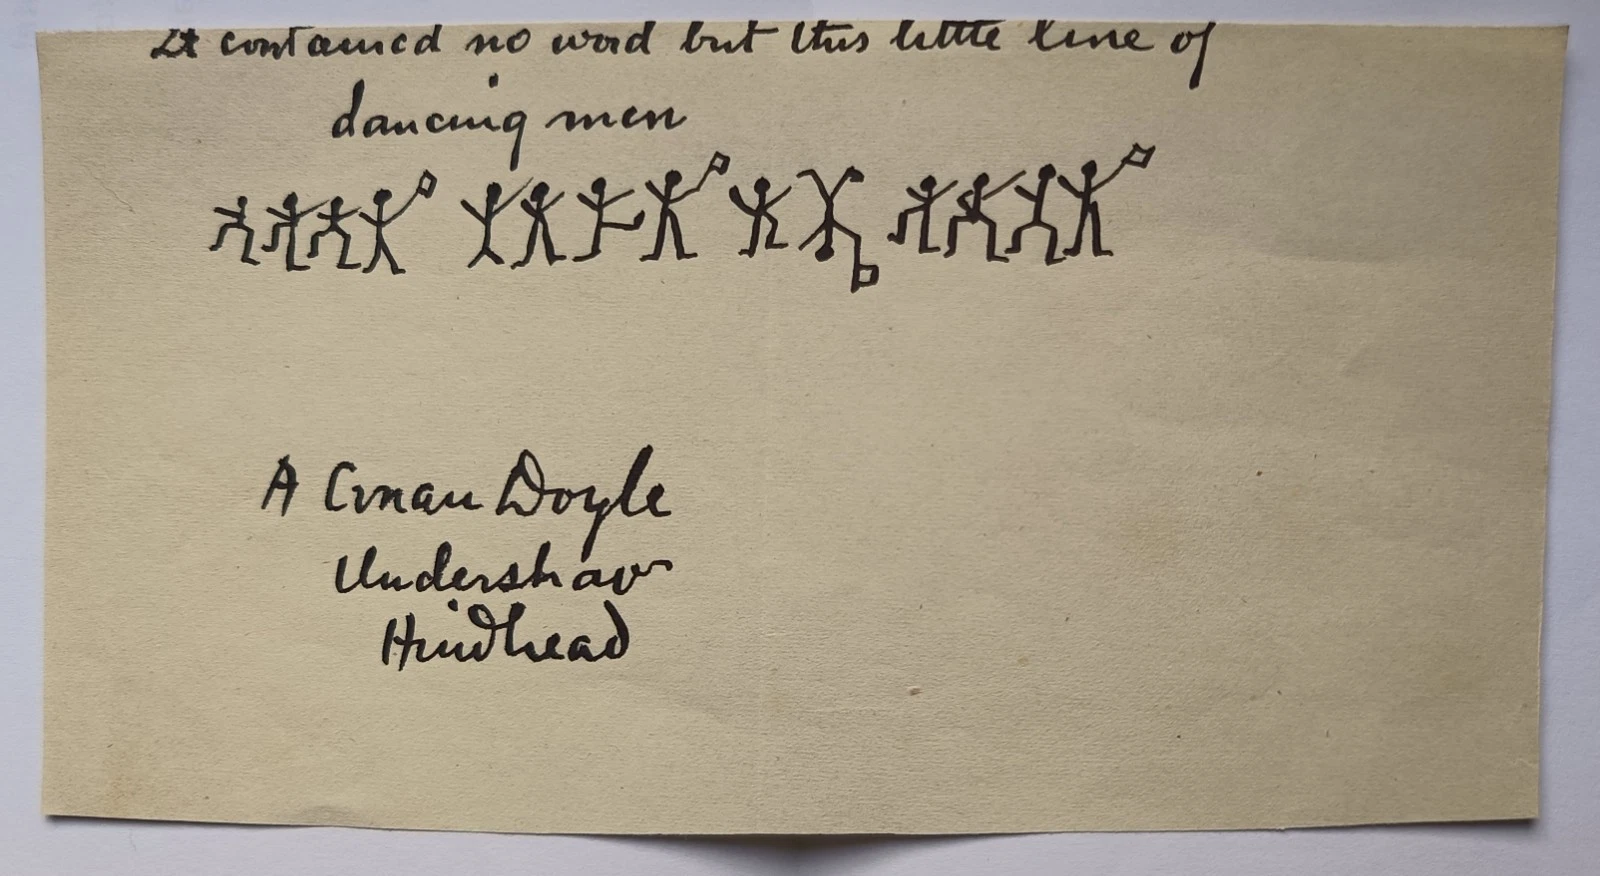 It contained no word but this little line of
dancing men
A Conan Doyle
Undershaw
Hindhead